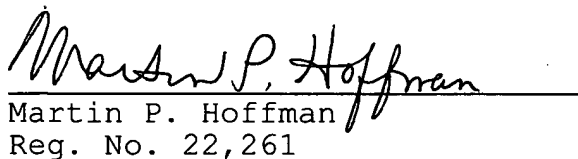 Martin P. Hoffman
Martin P. Hoffman
Reg. No. 22,261